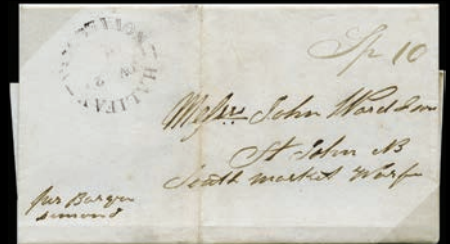 HALIFAX
Sp 10
Messrs John Ward & Son
St John NB
South market Warf
per Barque